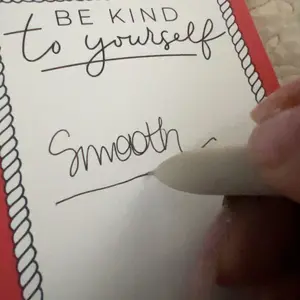 BE KIND
to yourself
Smooth